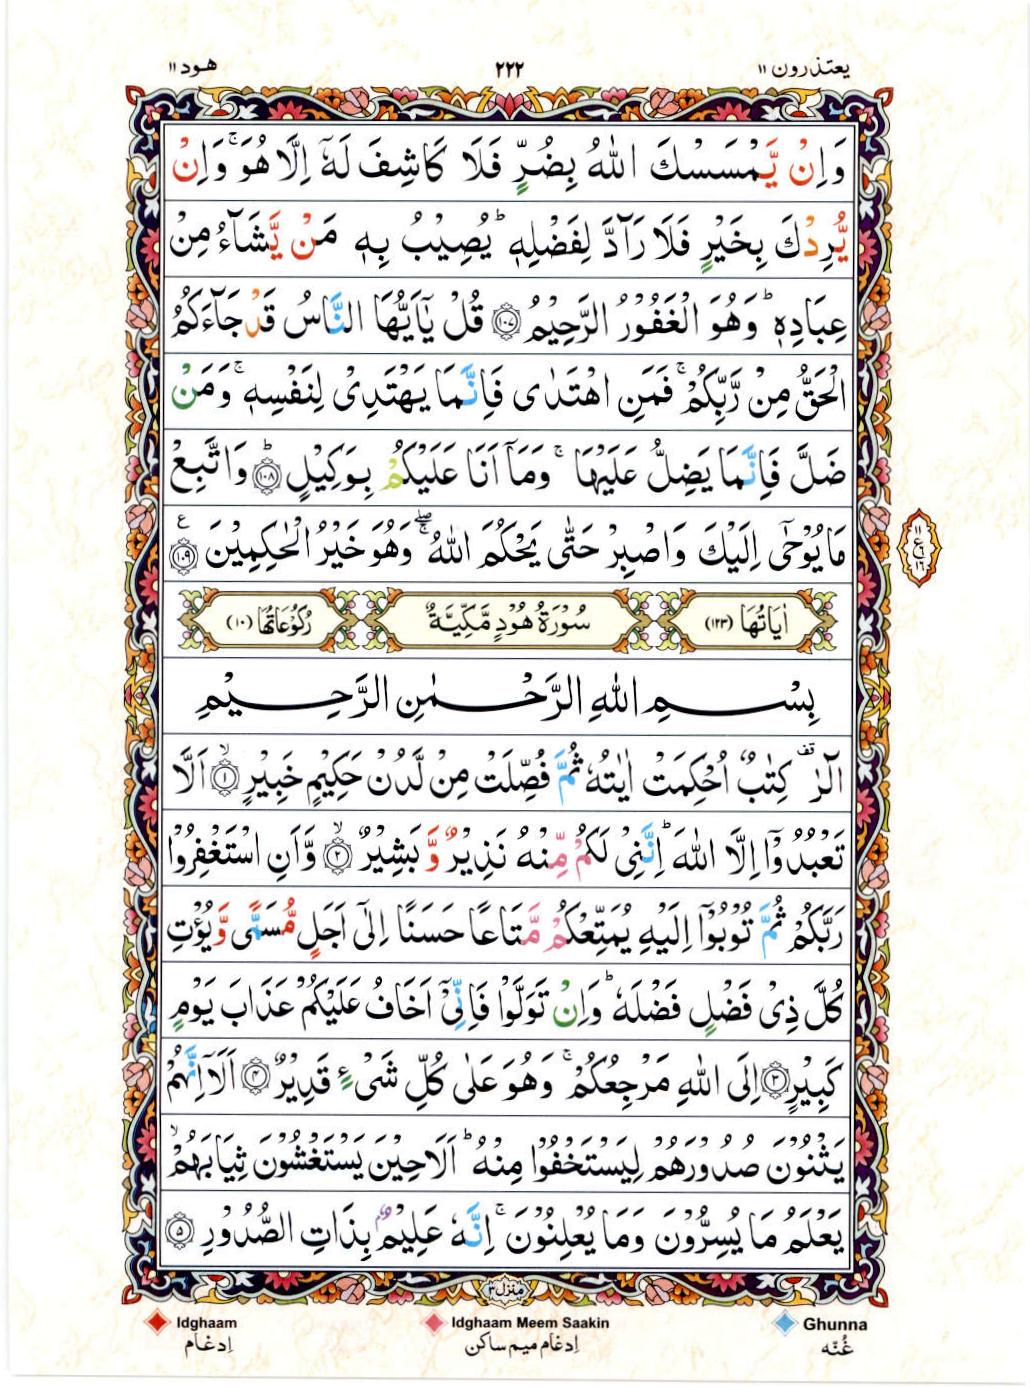 يعتذرون ۱۱
۲۲۲
هود ۱۱
وَاِنْ يَّمْسَسْكَ اللّٰهُ بِضُرٍّ فَلَا كَاشِفَ لَهٗٓ اِلَّا هُوَ ۚ وَاِنْ
يُّرِدْكَ بِخَيْرٍ فَلَا رَآدَّ لِفَضْلِهٖ ؕ يُصِيْبُ بِهٖ مَنْ يَّشَآءُ مِنْ
عِبَادِهٖ ؕ وَهُوَ الْغَفُوْرُ الرَّحِيْمُ ﴿۱۰۷﴾ قُلْ يٰۤاَيُّهَا النَّاسُ قَدْ جَآءَكُمُ
الْحَقُّ مِنْ رَّبِّكُمْ ۚ فَمَنِ اهْتَدٰى فَاِنَّمَا يَهْتَدِىْ لِنَفْسِهٖ ۚ وَمَنْ
ضَلَّ فَاِنَّمَا يَضِلُّ عَلَيْهَا ۚ وَمَاۤ اَنَا عَلَيْكُمْ بِوَكِيْلٍ ؕ ﴿۱۰۸﴾ وَاتَّبِعْ
مَا يُوْحٰۤى اِلَيْكَ وَاصْبِرْ حَتّٰى يَحْكُمَ اللّٰهُ ۖۚ وَهُوَ خَيْرُ الْحٰكِمِيْنَ ﴿۱۰۹﴾ ع
۱۱
ع
۱۶
اٰيَاتُهَا (۱۲۳)
سُوْرَةُ هُوْدٍ مَّكِّيَّةٌ
رُكُوْعَاتُهَا (۱۰)
بِسْمِ اللّٰهِ الرَّحْمٰنِ الرَّحِيْمِ
الٓرٰ ࣞ كِتٰبٌ اُحْكِمَتْ اٰيٰتُهٗ ثُمَّ فُصِّلَتْ مِنْ لَّدُنْ حَكِيْمٍ خَبِيْرٍ ۙ ﴿۱﴾ اَلَّا
تَعْبُدُوْۤا اِلَّا اللّٰهَ ؕ اِنَّنِىْ لَكُمْ مِّنْهُ نَذِيْرٌ وَّ بَشِيْرٌ ۙ ﴿۲﴾ وَّاَنِ اسْتَغْفِرُوْا
رَبَّكُمْ ثُمَّ تُوْبُوْۤا اِلَيْهِ يُمَتِّعْكُمْ مَّتَاعًا حَسَنًا اِلٰٓى اَجَلٍ مُّسَمًّى وَّيُؤْتِ
كُلَّ ذِىْ فَضْلٍ فَضْلَهٗ ؕ وَاِنْ تَوَلَّوْا فَاِنِّىْۤ اَخَافُ عَلَيْكُمْ عَذَابَ يَوْمٍ
كَبِيْرٍ ﴿۳﴾ اِلَى اللّٰهِ مَرْجِعُكُمْ ۚ وَهُوَ عَلٰى كُلِّ شَىْءٍ قَدِيْرٌ ﴿۴﴾ اَلَاۤ اِنَّهُمْ
يَثْنُوْنَ صُدُوْرَهُمْ لِيَسْتَخْفُوْا مِنْهُ ؕ اَلَا حِيْنَ يَسْتَغْشُوْنَ ثِيَابَهُمْ ۙ
يَعْلَمُ مَا يُسِرُّوْنَ وَمَا يُعْلِنُوْنَ ۚ اِنَّهٗ عَلِيْمٌۢ بِذَاتِ الصُّدُوْرِ ﴿۵﴾
منزل ۳
Idghaam
Idghaam Meem Saakin
Ghunna
اِدغام
اِدغام میم ساکن
غُنّه